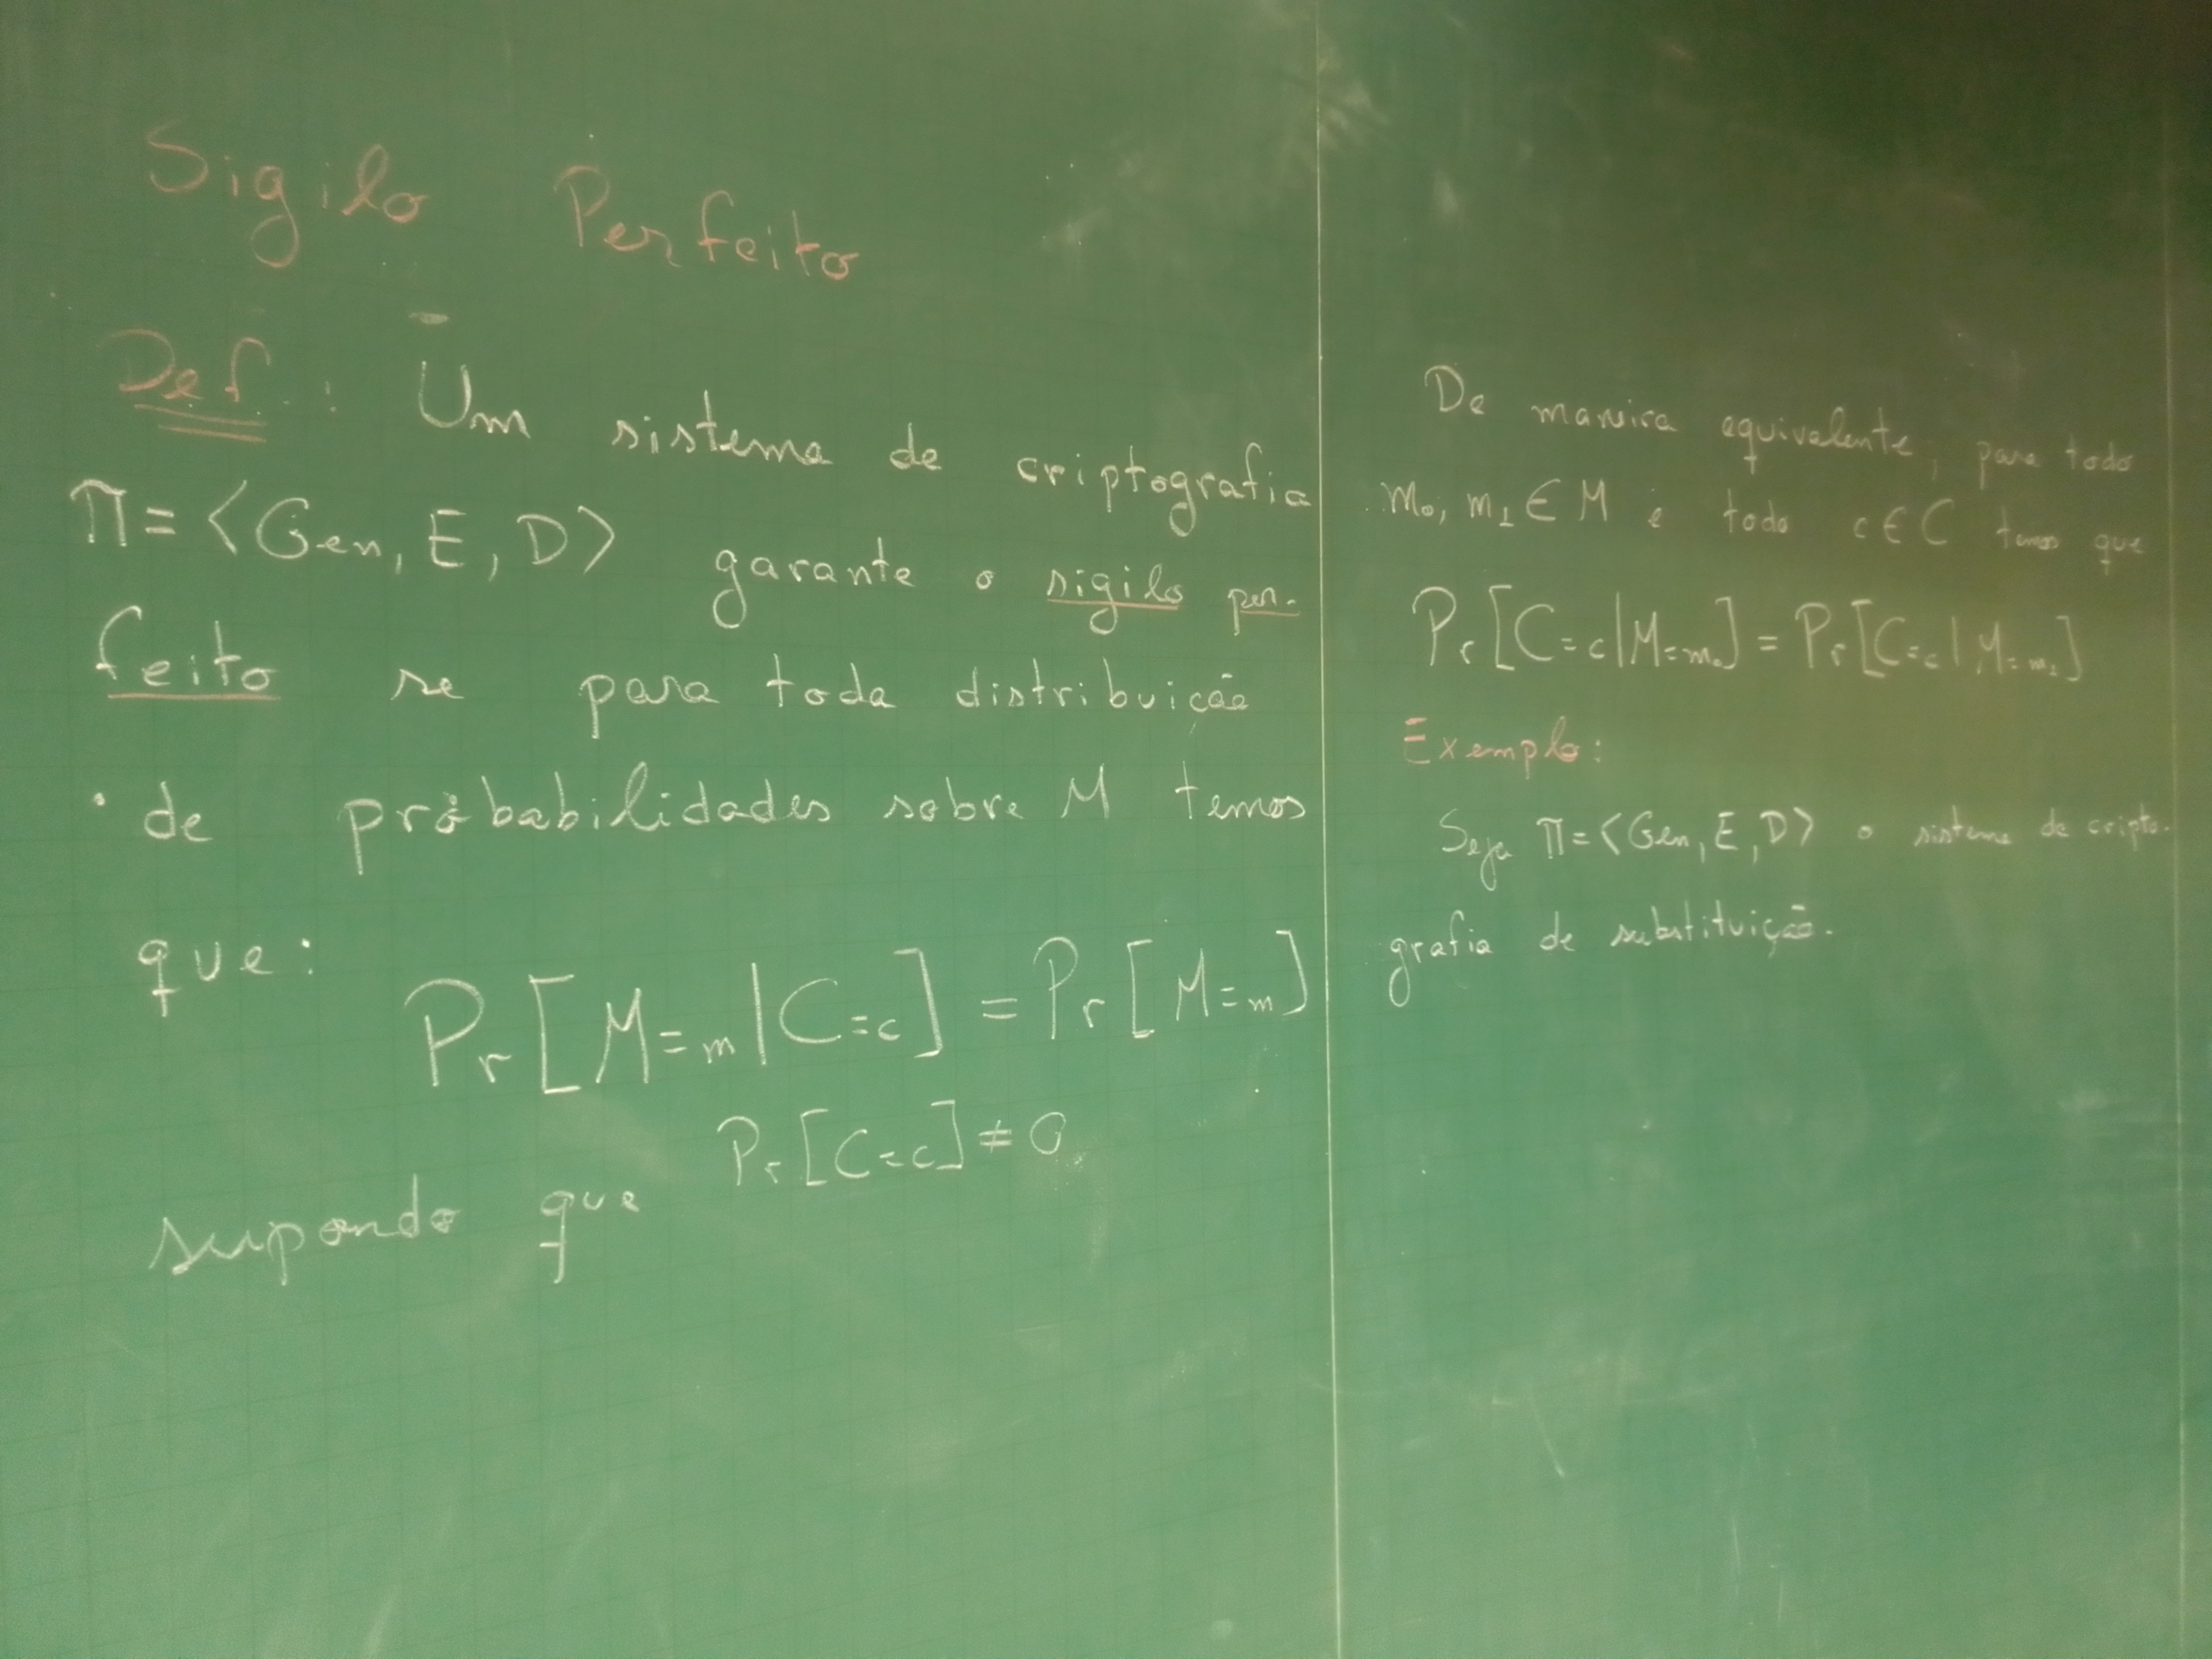 Sigilo Perfeito
Def.: Um sistema de criptografia
Π = ⟨Gen, E, D⟩ garante o sigilo per-
feito se para toda distribuição
de probabilidades sobre M temos
que:
Pr[M=m|C=c] = Pr[M=m]
supondo que Pr[C=c] ≠ 0
De maneira equivalente, para todo
m₀, m₁ ∈ M e todo c ∈ C temos que
Pr[C=c|M=m₀] = Pr[C=c|M=m₁]
Exemplo:
Seja Π = ⟨Gen, E, D⟩ o sistema de cripto-
grafia de substituição.